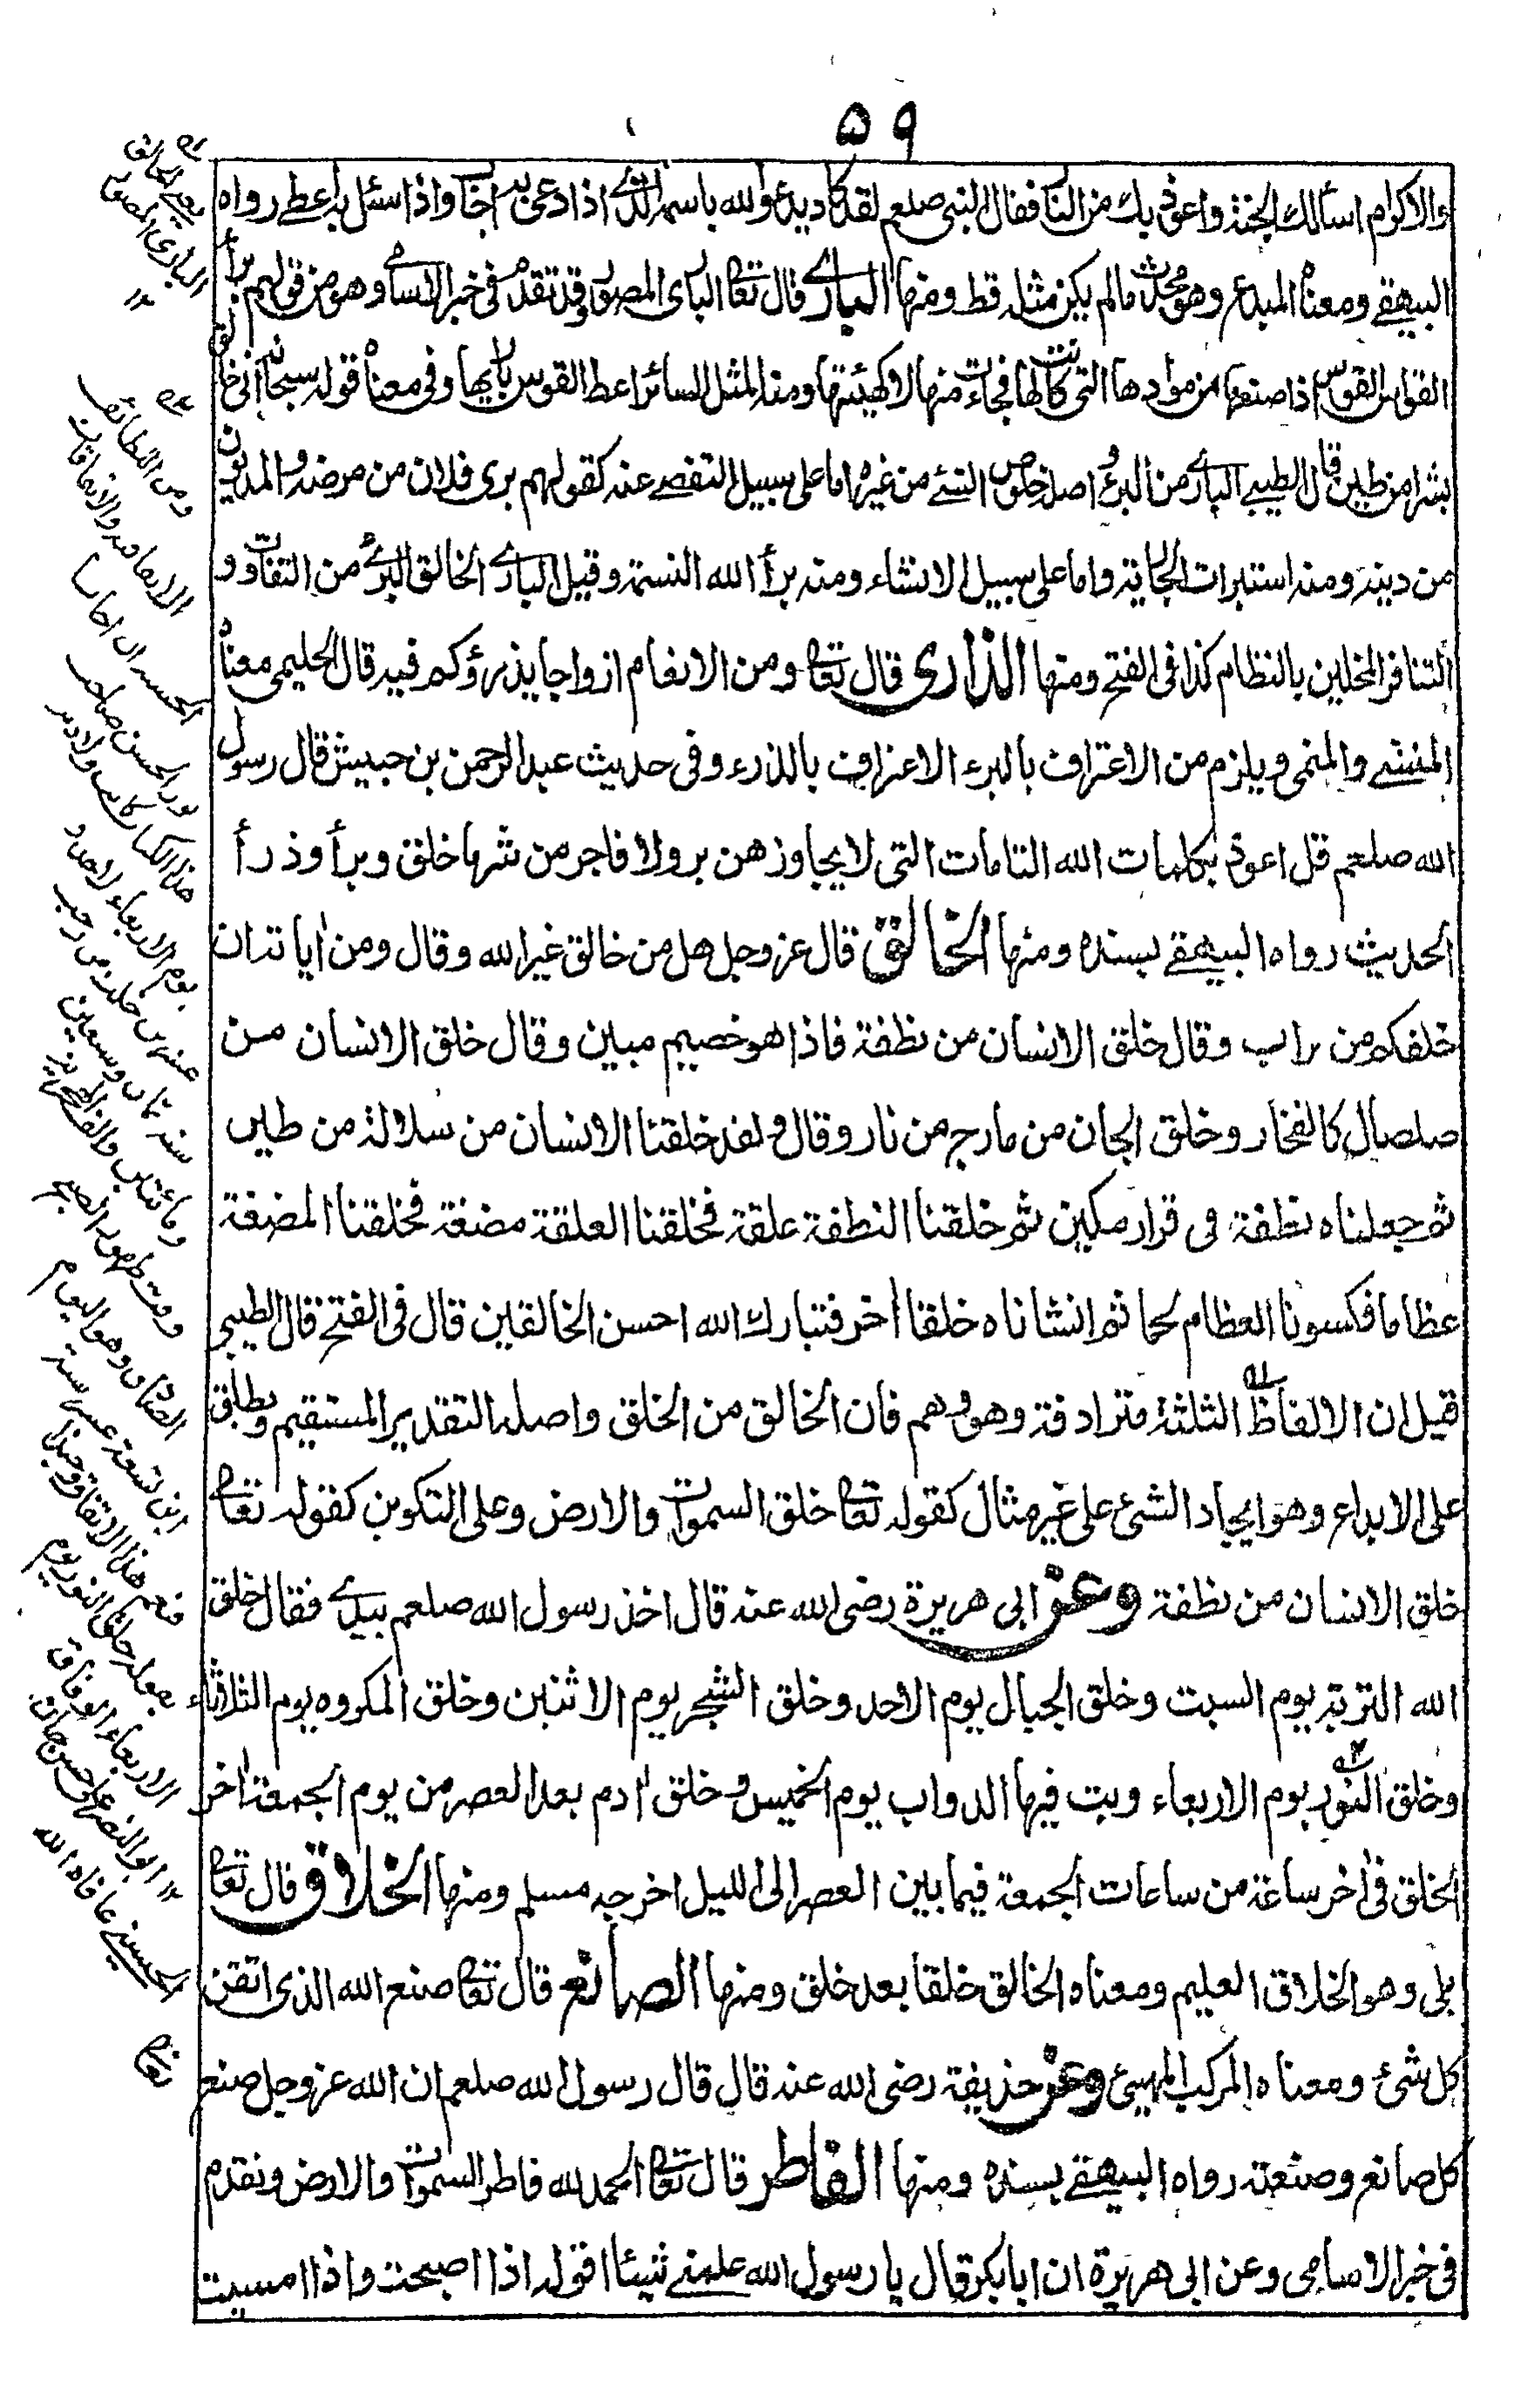 ٥٩
والاكرام اسألك الجنة واعوذ بك من النار فقال النبي صلعم لقد كاد يدعو الله باسمه الذي اذا دعي به اجاب واذا سئل به اعطى رواه
البيهقي ومعناه المبدع وهو محدث ما لم يكن مثله قط ومنها الباري قال تعا البارئ المصور وقد تقدم في خبر الاسامي وهو من قولهم برأ
القواس القوس اذا صنعها من موادها التي كانت لها فجاءت منها لا كهيئتها ومنه المثل السائر اعط القوس باريها وفي معناه قوله سبحانه اني خالق
بشرا من طين قال الطيبي الباري من البرء واصله خلوص الشئ من غيره اما على سبيل التفصي عنه كقولهم برى فلان من مرضه والمديون
من دينه ومنه استبرات الجارية واما على سبيل الانشاء ومنه برأ الله النسمة وقيل الباري الخالق البرئ من التفاوت و
التنافر المخلين بالنظام كذا في الفتح ومنها الذارى قال تعا ومن الانعام ازواجا يذرؤكم فيه قال الحليمي معناه
المنشي والمنمي ويلزم من الاعتراف بالبرء الاعتراف بالذرء وفي حديث عبد الرحمن بن حبيش قال رسول
الله صلعم قل اعوذ بكلمات الله التامات التي لا يجاوزهن بر ولا فاجر من شر ما خلق وبرأ وذرأ
الحديث رواه البيهقي بسنده ومنها الخالق قال عز وجل هل من خالق غير الله وقال ومن اياته ان
خلقكم من تراب وقال خلق الانسان من نطفة فاذا هو خصيم مبين وقال خلق الانسان من
صلصال كالفخار وخلق الجان من مارج من نار وقال ولقد خلقنا الانسان من سلالة من طين
ثم جعلناه نطفة في قرار مكين ثم خلقنا النطفة علقة فخلقنا العلقة مضغة فخلقنا المضغة
عظاما فكسونا العظام لحما ثم انشاناه خلقا اخر فتبارك الله احسن الخالقين قال في الفتح قال الطيبي
قيل ان الالفاظ الثلثة مترادفة وهو وهم فان الخالق من الخلق واصله التقدير المستقيم ويطلق
على الابداع وهو ايجاد الشئ على غير مثال كقوله تعا خلق السموات والارض وعلى التكوين كقوله تعا
خلق الانسان من نطفة وعن ابي هريرة رضي الله عنه قال اخذ رسول الله صلعم بيدي فقال خلق
الله التربة يوم السبت وخلق الجبال يوم الاحد وخلق الشجر يوم الاثنين وخلق المكروه يوم الثلاثاء
وخلق النور يوم الاربعاء وبث فيها الدواب يوم الخميس وخلق ادم بعد العصر من يوم الجمعة اخر
الخلق في اخر ساعة من ساعات الجمعة فيما بين العصر الى الليل اخرجه مسلم ومنها الخلاق قال تعا
بلى وهو الخلاق العليم ومعناه الخالق خلقا بعد خلق ومنها الصانع قال تعا صنع الله الذي اتقن
كل شئ ومعناه المركب المهيئ وعن حذيفة رضي الله عنه قال قال رسول الله صلعم ان الله عز وجل صنع
كل صانع وصنعته رواه البيهقي بسنده ومنها الفاطر قال تعا الحمد لله فاطر السموات والارض وتقدم
في خبر الاسامي وعن ابي هريرة ان ابا بكر قال يا رسول الله علمني شيئا اقوله اذا اصبحت واذا امسيت
يعني الخالق
البارئ المصور
١٢
ومن اللطائف
يوم الاربعاء لاحدى
سنة ثمان وسبعين
الصادق وهو اليوم
ابن تسعة عشر سنة
فنعم هذا الاتفاق وحبذا
الاربعاء الوفاق
١٢ ابو النصر علي حسن خان
الحسيني عافاه الله
تعا